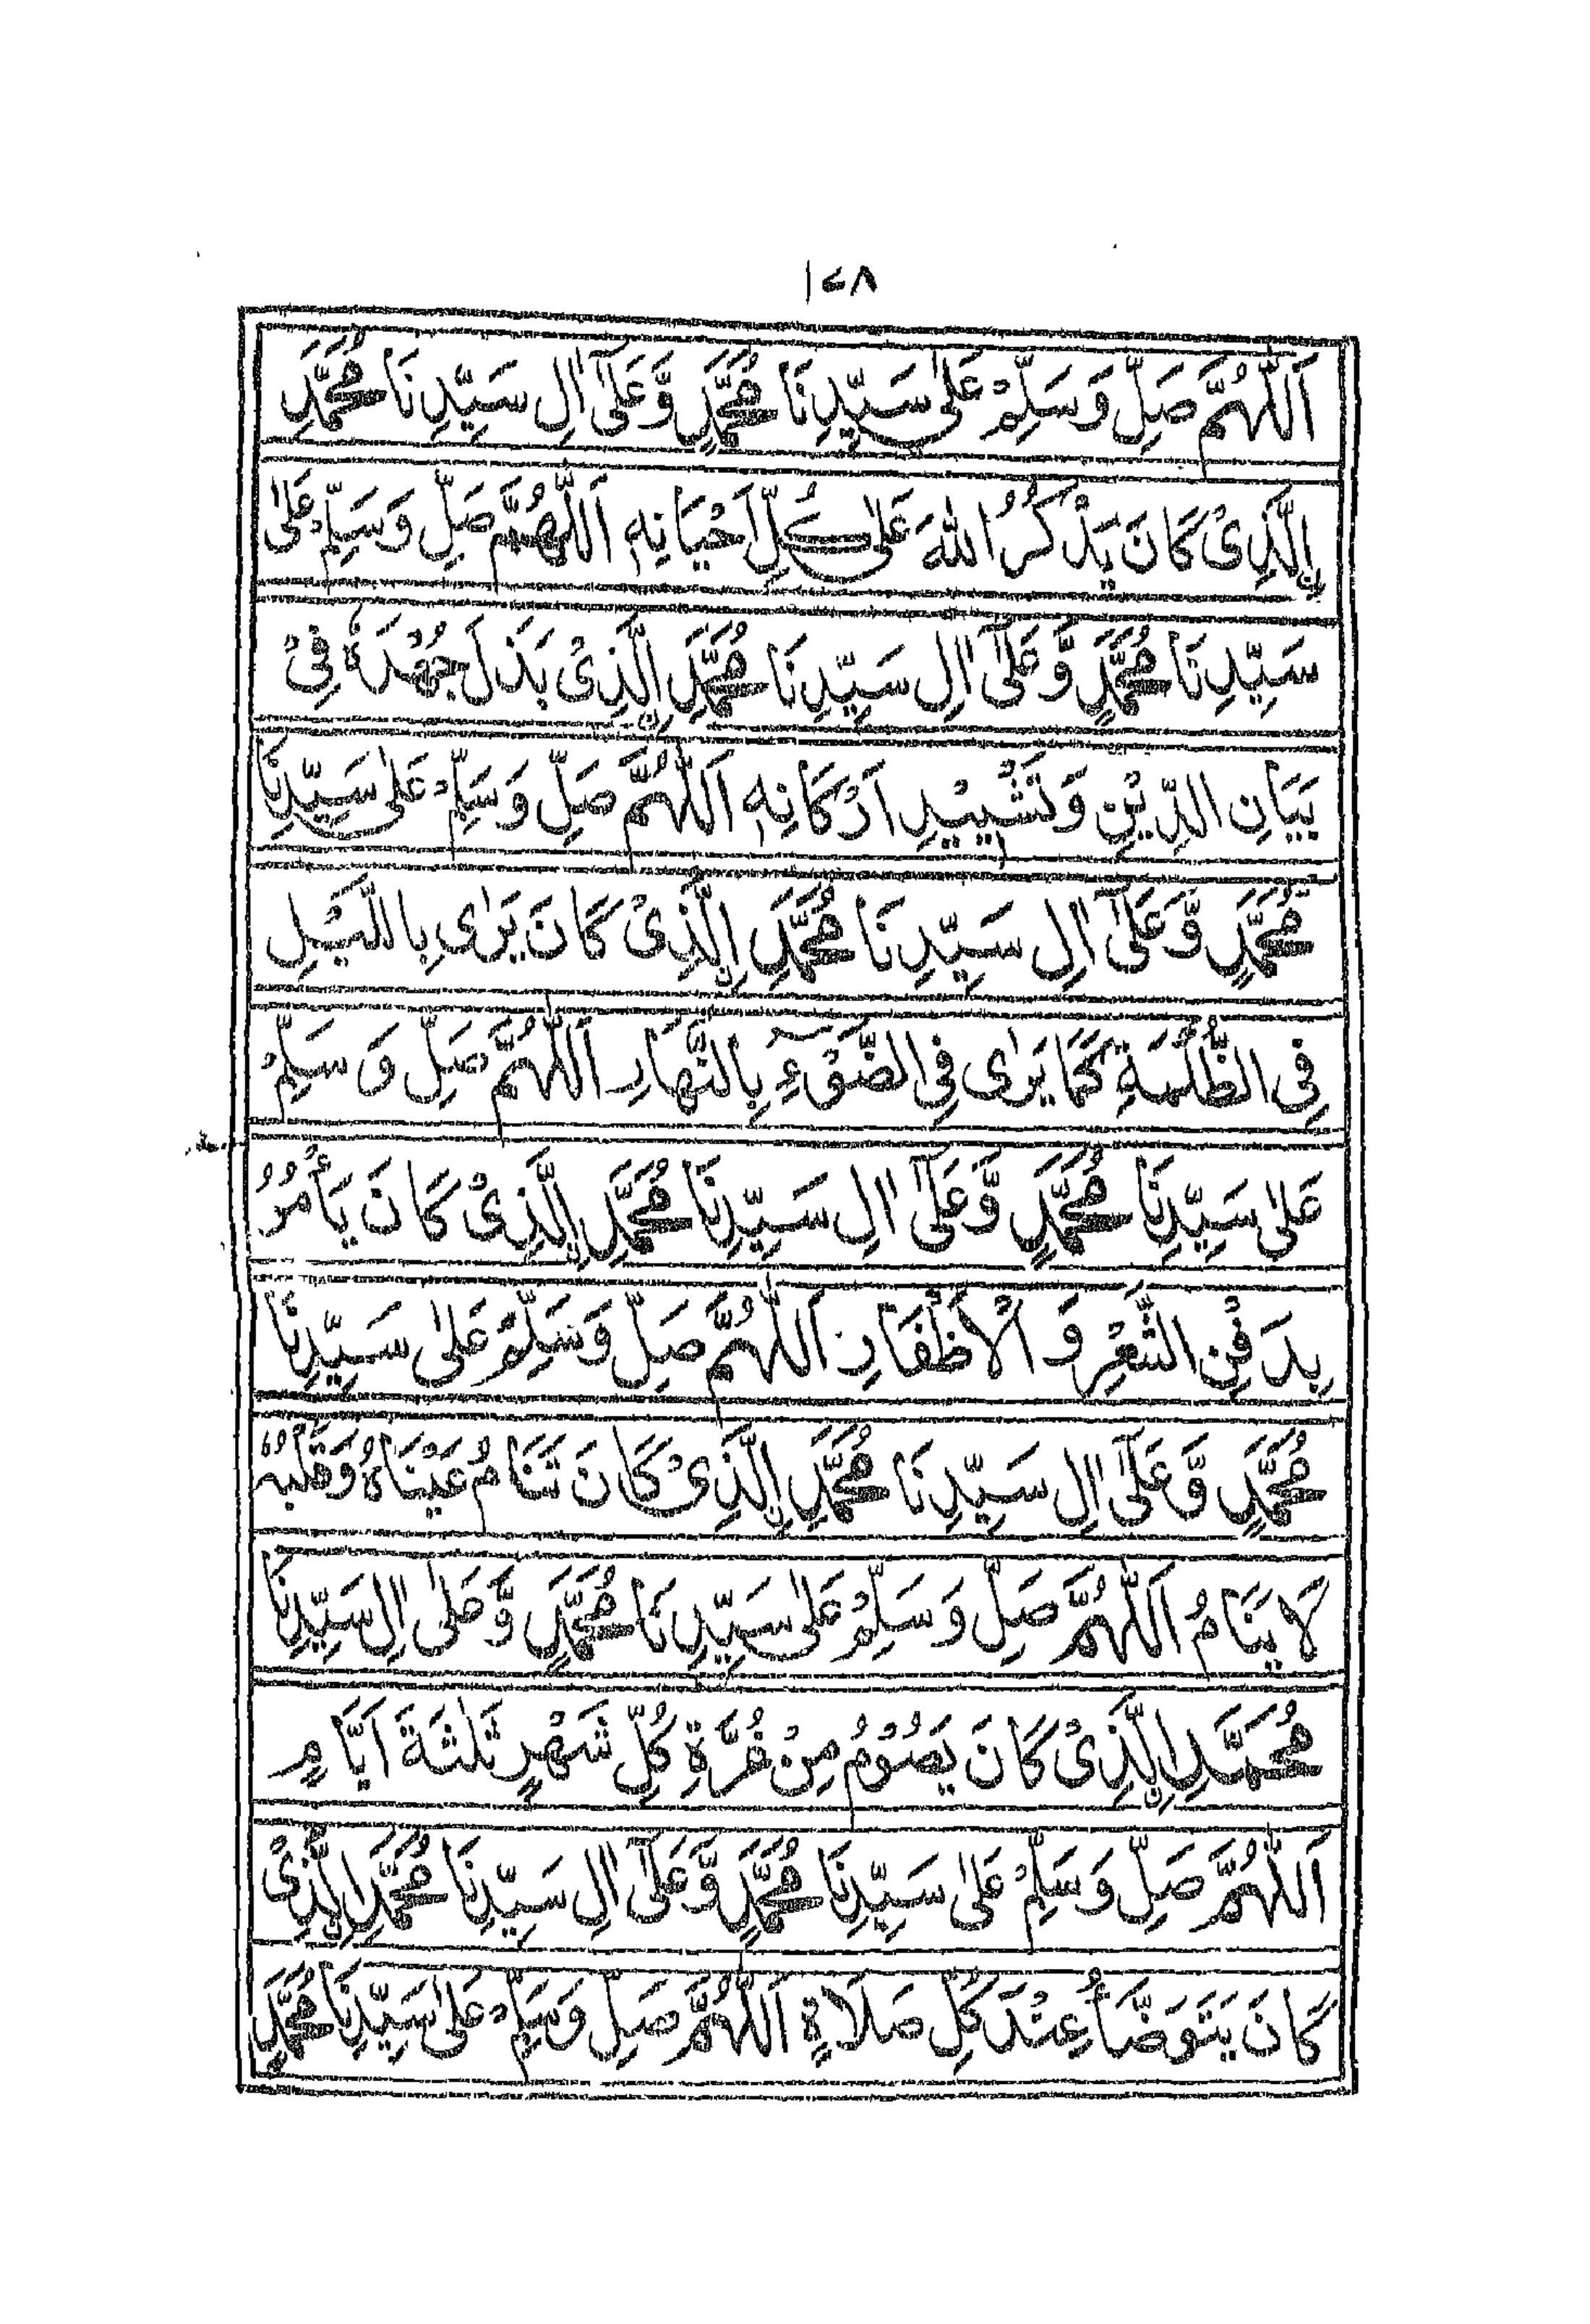 ١٤٨
اَللّٰهُمَّ صَلِّ وَسَلِّمْ عَلٰى سَيِّدِنَا مُحَمَّدٍ وَّعَلٰٓى اٰلِ سَيِّدِنَا مُحَمَّدِ
نِالَّذِىْ كَانَ يَذْكُرُ اللّٰهَ عَلٰى كُلِّ اَحْيَانِهٖ اَللّٰهُمَّ صَلِّ وَسَلِّمْ عَلٰى
سَيِّدِنَا مُحَمَّدٍ وَّعَلٰٓى اٰلِ سَيِّدِنَا مُحَمَّدِ نِالَّذِىْ بَذَلَ جُهْدَهٗ فِىْ
بَيَانِ الدِّيْنِ وَتَشْيِيْدِ اَرْكَانِهٖ اَللّٰهُمَّ صَلِّ وَسَلِّمْ عَلٰى سَيِّدِنَا
مُحَمَّدٍ وَّعَلٰٓى اٰلِ سَيِّدِنَا مُحَمَّدِ نِالَّذِىْ كَانَ يَرٰى بِاللَّيْلِ
فِى الظُّلْمَةِ كَمَا يَرٰى فِى الضَّوْٓءِ بِالنَّهَارِ اَللّٰهُمَّ صَلِّ وَسَلِّمْ
عَلٰى سَيِّدِنَا مُحَمَّدٍ وَّعَلٰٓى اٰلِ سَيِّدِنَا مُحَمَّدِ نِالَّذِىْ كَانَ يَأْمُرُ
بِدَفْنِ الشَّعْرِ وَ الْاَظْفَارِ اَللّٰهُمَّ صَلِّ وَسَلِّمْ عَلٰى سَيِّدِنَا
مُحَمَّدٍ وَّعَلٰٓى اٰلِ سَيِّدِنَا مُحَمَّدِ نِالَّذِىْ كَانَ تَنَامُ عَيْنَاهُ وَقَلْبُهٗ
لَا يَنَامُ اَللّٰهُمَّ صَلِّ وَسَلِّمْ عَلٰى سَيِّدِنَا مُحَمَّدٍ وَّعَلٰى اٰلِ سَيِّدِنَا
مُحَمَّدِ نِالَّذِىْ كَانَ يَصُوْمُ مِنْ غُرَّةِ كُلِّ شَهْرٍ ثَلٰثَةَ اَيَّامٍ
اَللّٰهُمَّ صَلِّ وَسَلِّمْ عَلٰى سَيِّدِنَا مُحَمَّدٍ وَّعَلٰٓى اٰلِ سَيِّدِنَا مُحَمَّدِ نِالَّذِىْ
كَانَ يَتَوَضَّأُ عِنْدَ كُلِّ صَلَاةٍ اَللّٰهُمَّ صَلِّ وَسَلِّمْ عَلٰى سَيِّدِنَا مُحَمَّدٍ